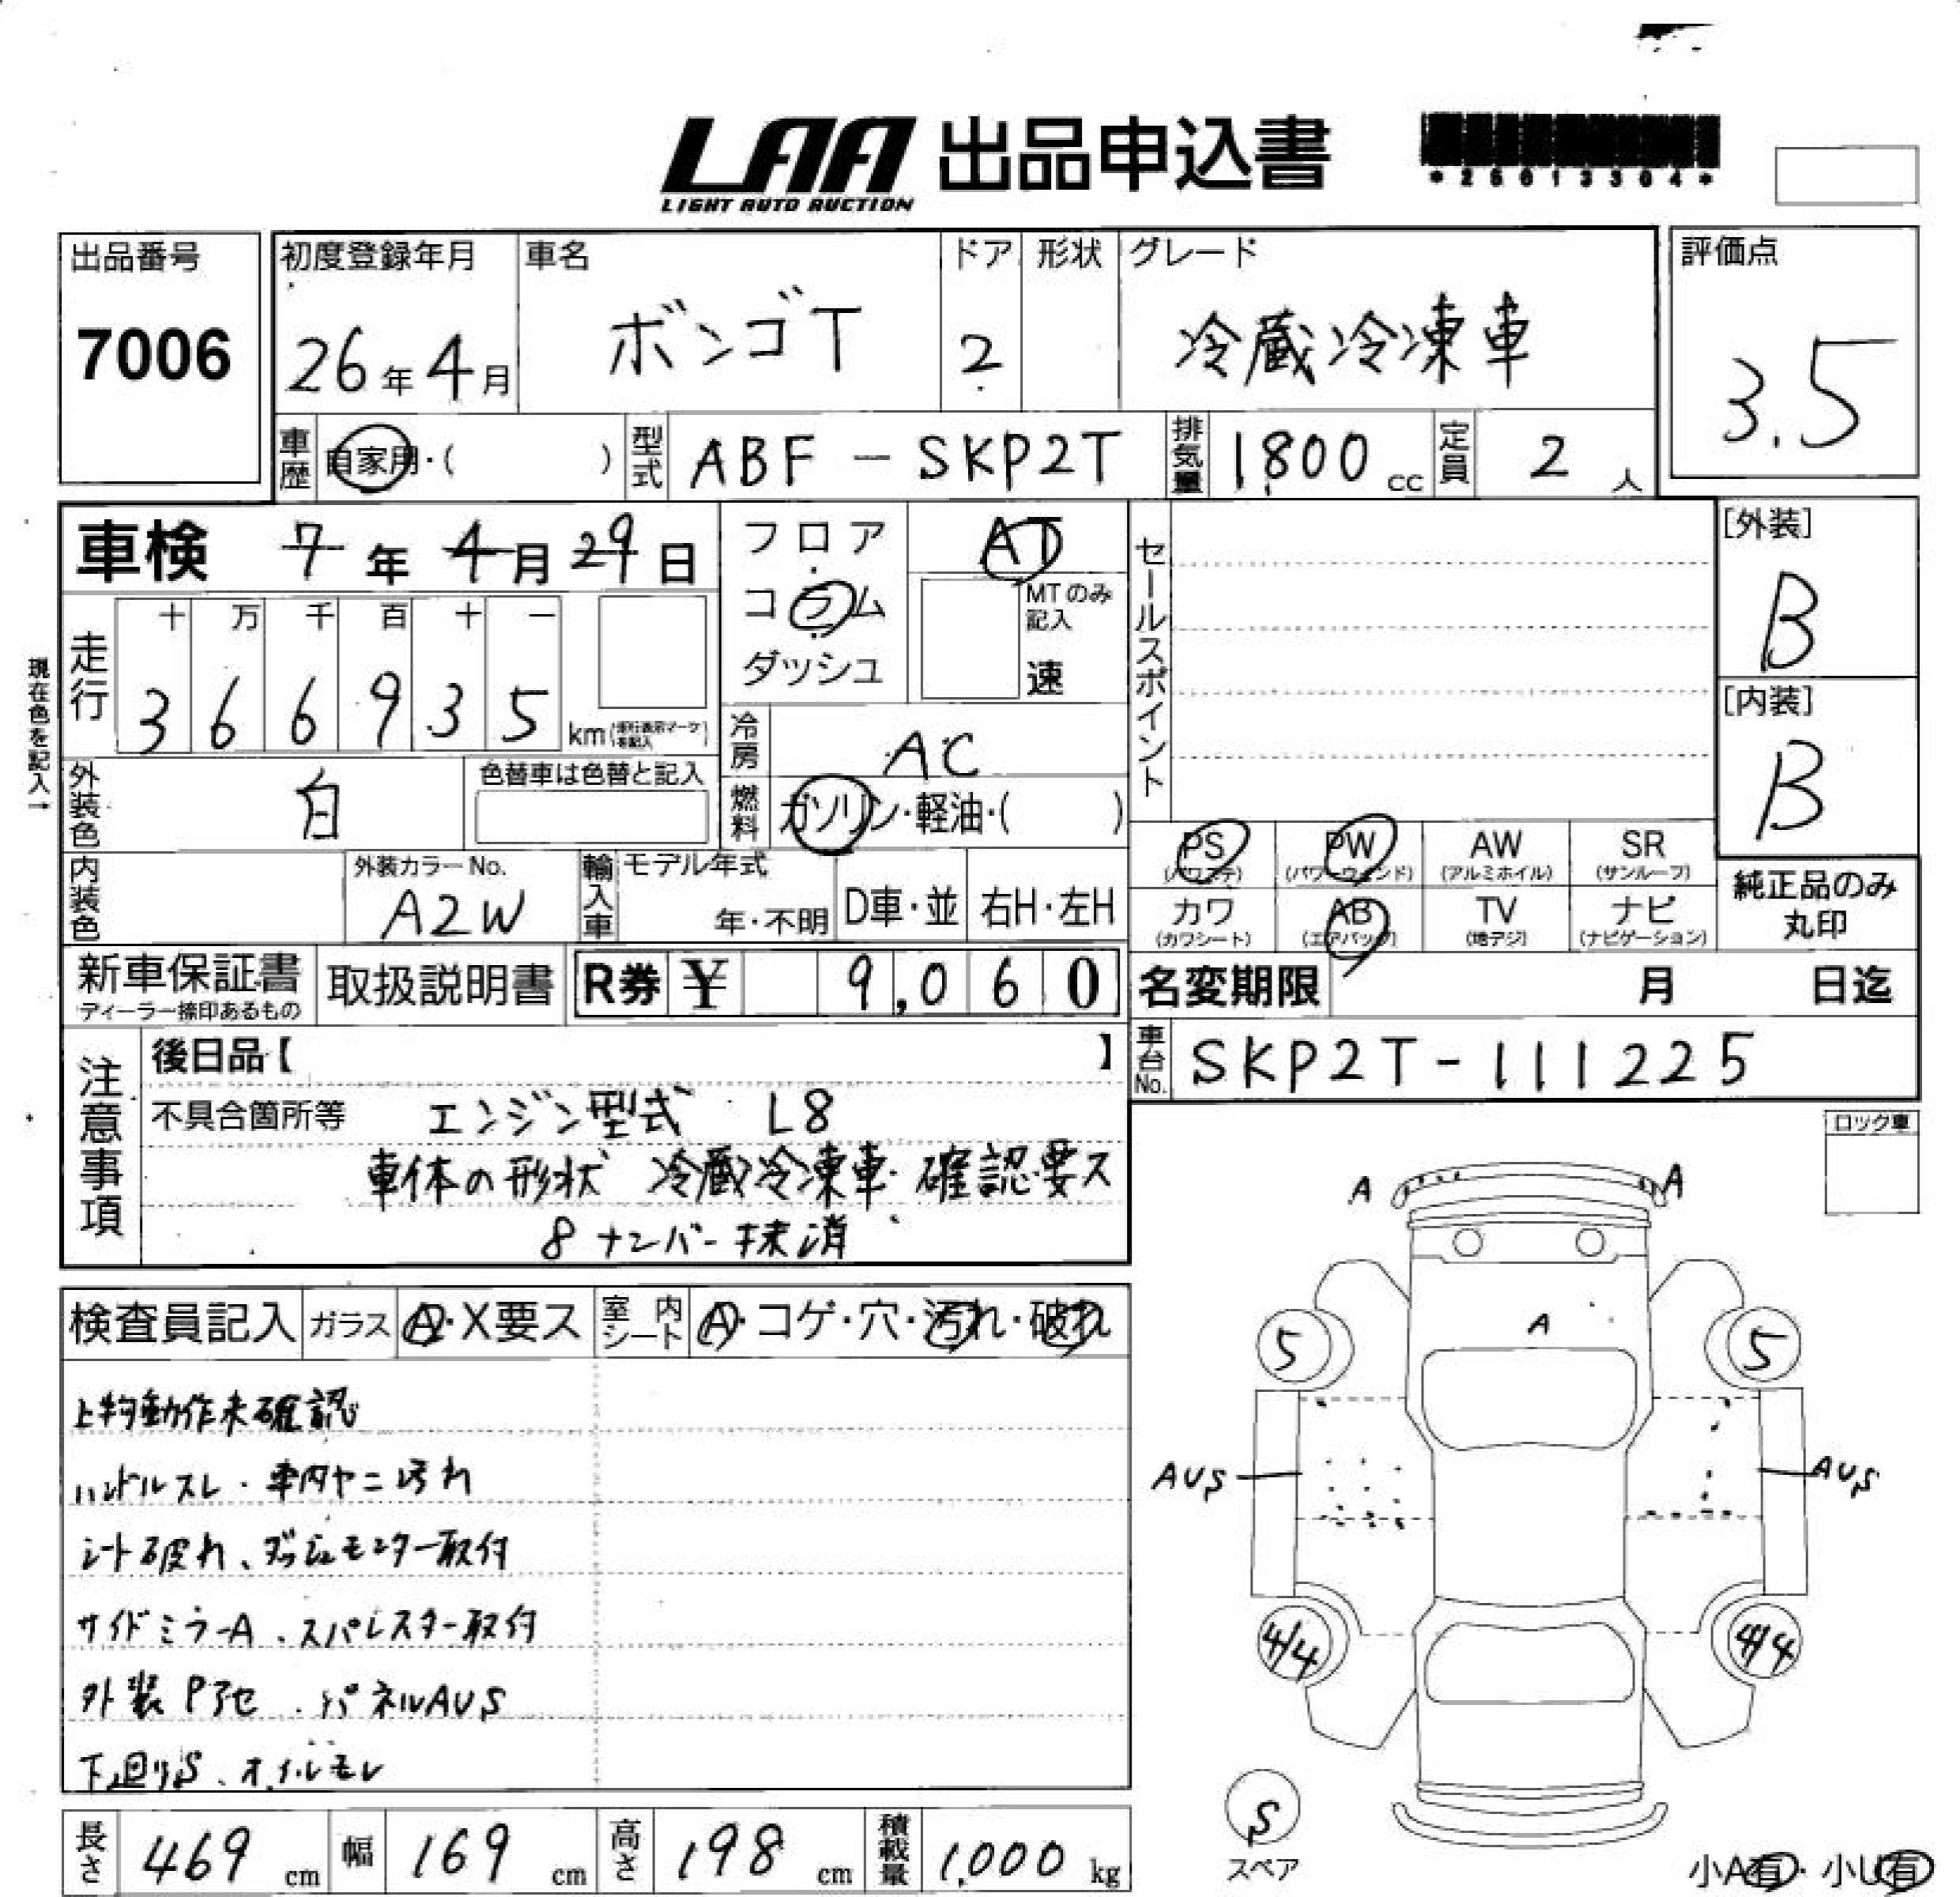 LAA 出品申込書
LIGHT AUTO AUCTION
*25013304*
出品番号
7006
初度登録年月
26年4月
車名
ボンゴT
ドア
2
形状
グレード
冷蔵冷凍車
評価点
3.5
車歴
自家用・( )
型式
ABF-SKP2T
排気量
1,800 cc
定員
2 人
車検 7年4月29日
現在色を記入→
走行
十 万 千 百 十 一
3 6 6 9 3 5 km
フロア
コラム
ダッシュ
AT
MTのみ記入
速
冷房
AC
燃料
ガソリン・軽油・( )
セールスポイント
[外装]
B
[内装]
B
外装色
白
色替車は色替と記入
内装色
外装カラーNo.
A2W
輸入車
モデル年式
年・不明
D車・並
右H・左H
PS (パワステ)
PW (パワーウィンド)
AW (アルミホイル)
SR (サンルーフ)
カワ (カワシート)
AB (エアバッグ)
TV (地デジ)
ナビ (ナビゲーション)
純正品のみ
丸印
新車保証書
ディーラー捺印あるもの
取扱説明書
R券 ¥ 9,060
名変期限 月 日迄
車台No.
SKP2T-111225
注意事項
後日品【 】
不具合箇所等 エンジン型式 L8
車体の形状 冷蔵冷凍車 確認要ス
8ナンバー抹消
ロック車
検査員記入
ガラス
A・X要ス
室内シート
A・コゲ・穴・汚れ・破れ
上物動作未確認
ハンドルスレ・車内ヤニ汚れ
シート破れ、ダッシュモニター取付
サイドミラーA、スパレスター取付
外装Pアセ、パネルAUS
下廻りS、オイルモレ
A
A
A
5
5
AUS
AUS
4/4
4/4
S
スペア
長さ
469 cm
幅
169 cm
高さ
198 cm
積載量
1,000 kg
小A有・小U有